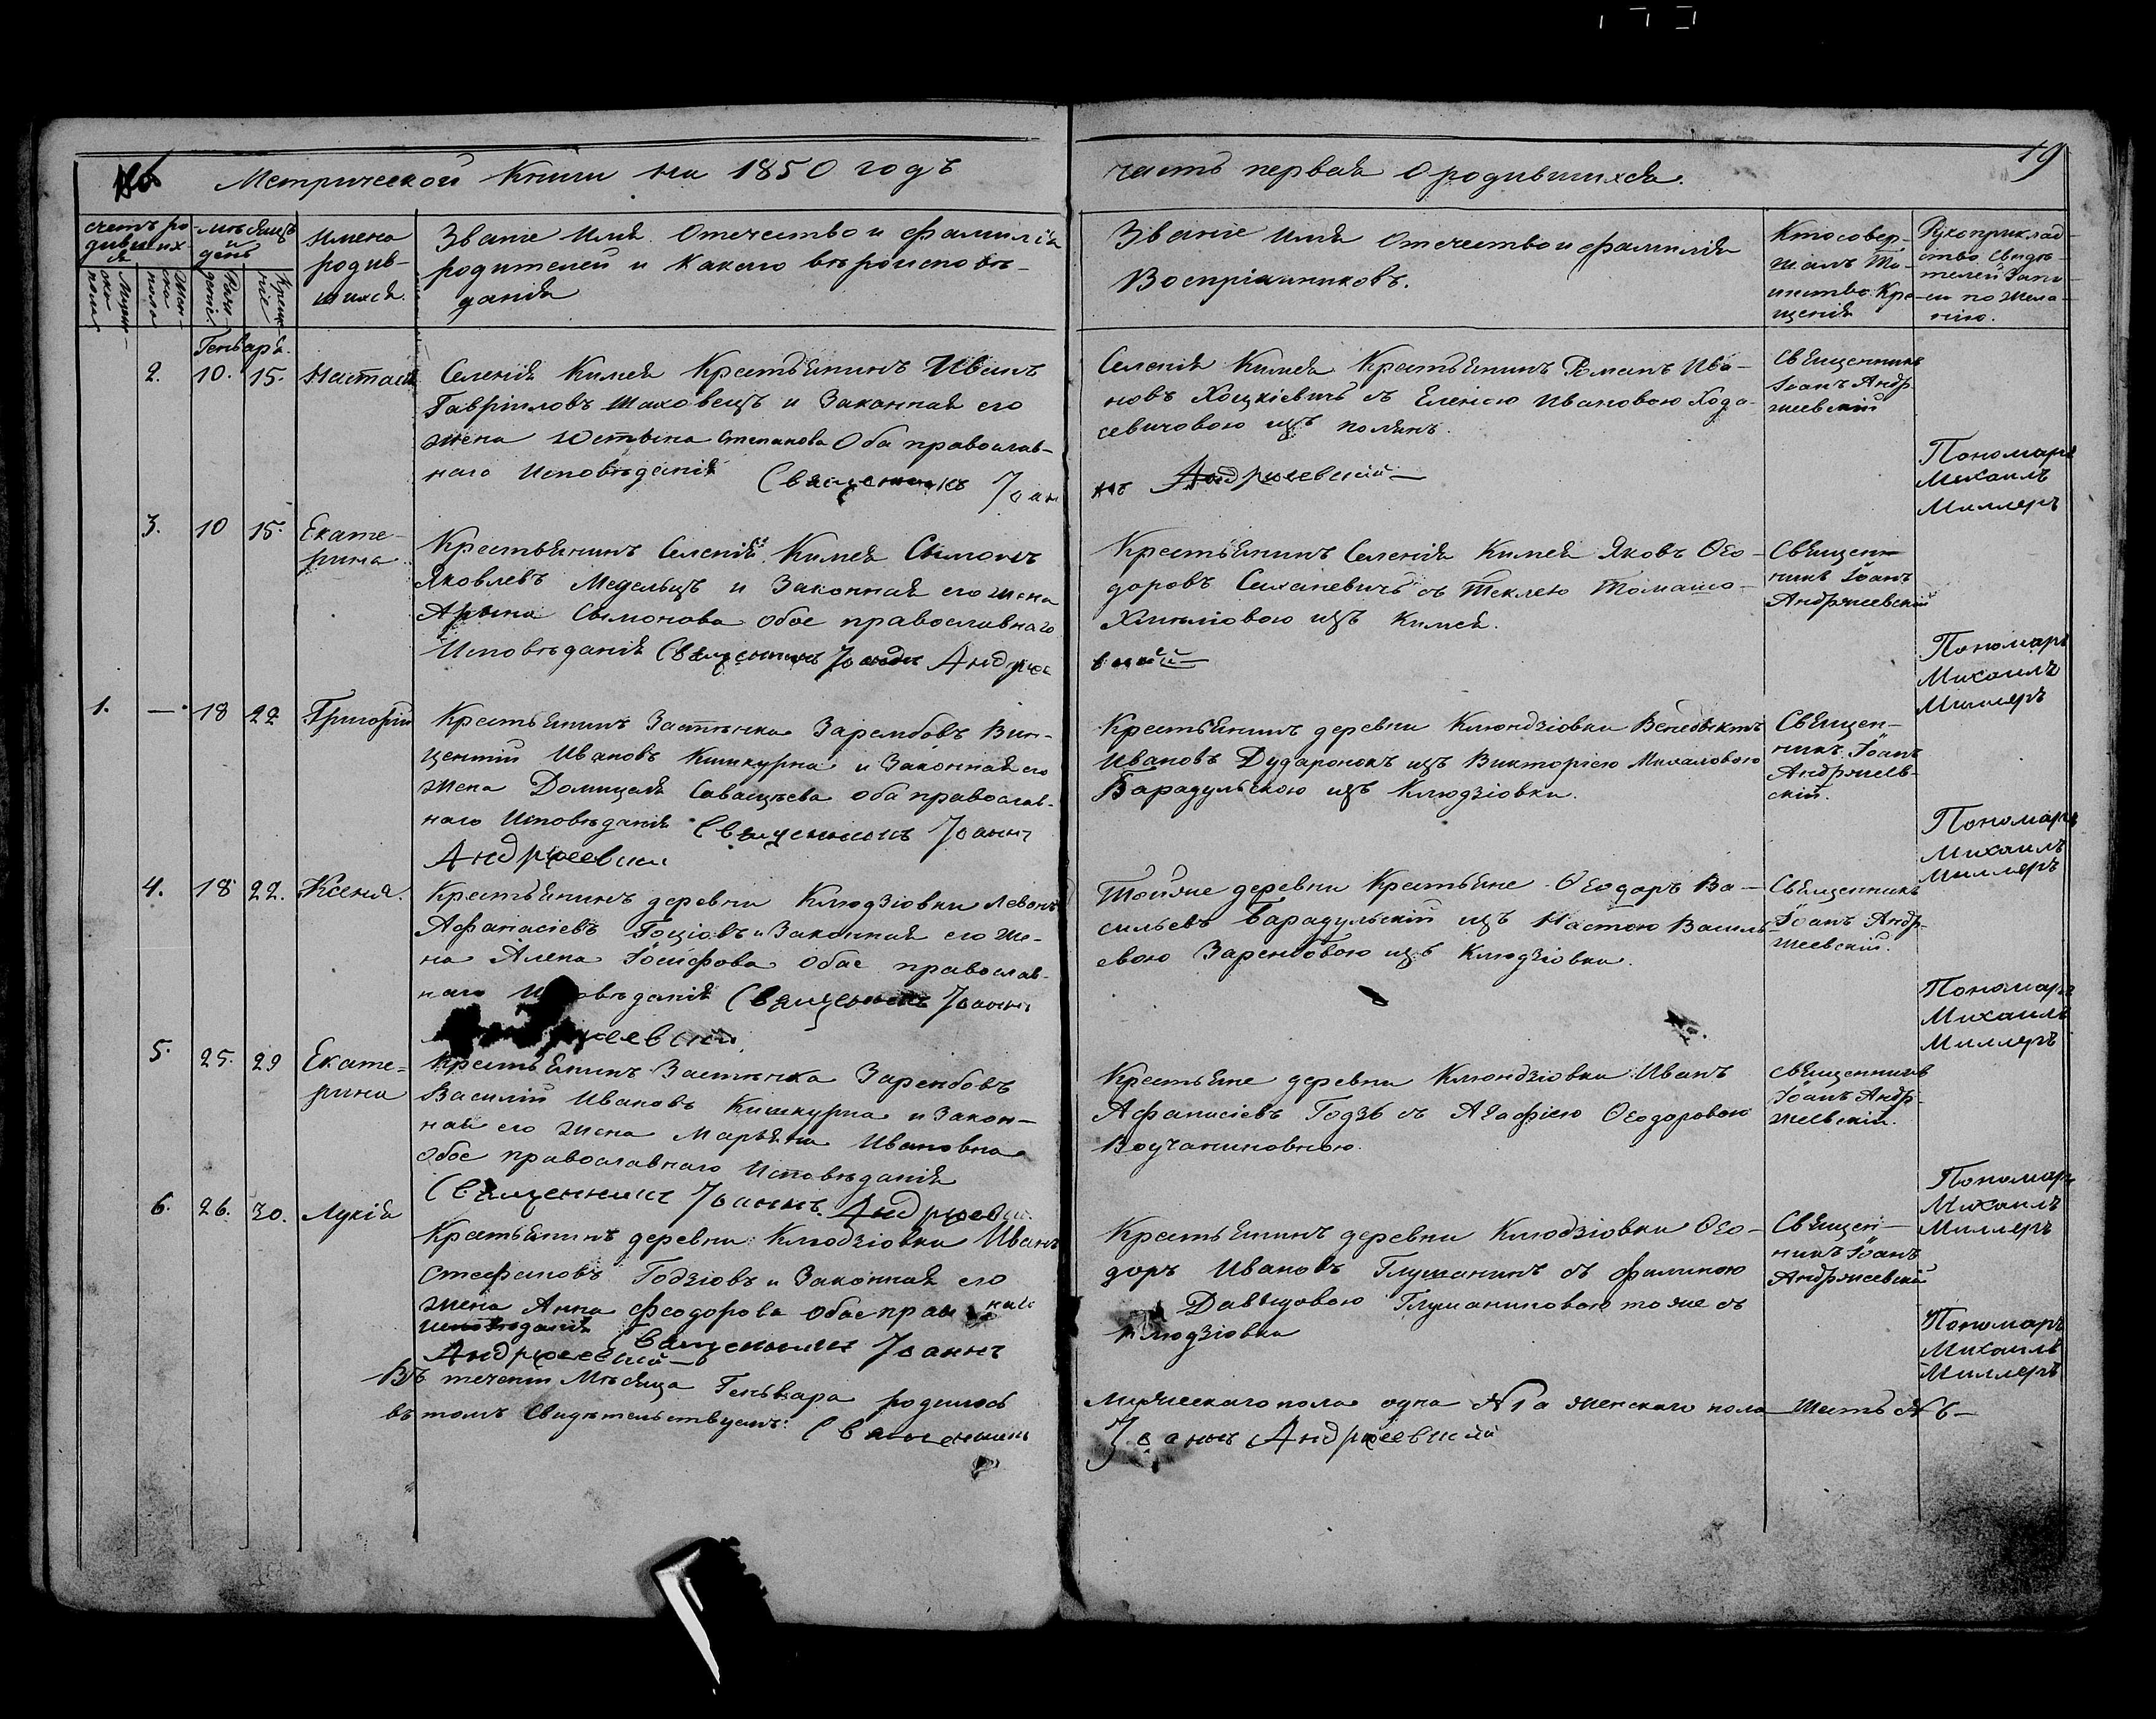 Метрической Книги на 1850 годъ
часть первая о родившихся.
19
счетъ ро-
дивших-
ся
мѣсяцъ
и
день
Имена
родив-
шихся.
Званіе Имя Отечество и фамилія
родителей и какого вѣроисповѣ-
данія
Званіе имя Отечество и фамилія
Воспріимниковъ.
Кто совер-
шалъ Та-
инство Кре-
щенія
Рукоприклад-
ство Свидѣ-
телей Запи-
си по жела-
нію.
Генваря.
2. 10. 15. Настасія
Селенія Кимея Крестьянинъ Иванъ
Гавріиловъ Шаховецъ и Законная его
жена Юстына Степанова Оба православ-
наго Исповѣданія Священникъ Іоан
Селенія Кимея Крестьянинъ Романъ Ива-
новъ Хоцкіевичъ съ Еленою Ивановою Хода-
севичовою изъ
нъ Андржеевский
Священникъ
Іоанъ Андр
жеевскій
Пономарь
Михаилъ
Миллеръ
3. 10 15. Екате-
рина
Крестьянинъ Селенія Кимея Сымонъ
Яковлевъ Медельцъ и Законная его жена
Арына Сымонова обое православнаго
Исповѣданія Священникъ Іоаннъ Андрже
Крестьянинъ Селенія Кимея Яковъ Ѳео-
доровъ Саханевичъ съ Теклею Томашо-
изъ Кимея.
вский
Священ-
никъ Іоанъ
Андржеевскій
Пономарь
Михаилъ
Миллеръ
1. — 18 22 Григорій
Крестьянинъ Застѣнка Зарембовъ Вин-
центій Ивановъ Кишкурна и Законная его
жена Домицеля оба православ-
наго Исповѣданія Священникъ Іоаннъ
Андржеевский
Крестьянинъ деревни Клюндзіовки Венедыктъ
Ивановъ Дударонокъ изъ Викторіею Михаловою
Барадульскою изъ Клюдзіовки.
Священ-
никъ Іоанъ
Андржеев-
скій.
Пономарь
Михаилъ
Миллеръ
4. 18 22. Ксенія.
Крестьянинъ деревни Клюдзіовки Левонъ
Афанасіевъ Гоціовъ и Законная его же-
на Алена Іосифова обое православ-
наго Священникъ Іоаннъ
Тойже деревни Крестьяне Ѳеодоръ Ва-
сильевъ Барадульскій изъ Настою Василь-
евою Зарембовою изъ Клюдзіовки.
Священникъ
Іоанъ Андр-
жеевскій.
Пономарь
Михаилъ
Миллеръ
5. 25. 29 Екате-
рина
Крестьянинъ Застѣнка Зарембовъ
Василій Ивановъ Кишкурна и Закон-
ная его жена Марьяна Ивановна
обое православнаго Исповѣданія
Священникъ Іоаннъ Андржеевс
Крестьяне деревни Клюндзіовки Иванъ
Афанасіевъ Годзь съ Агафіею Ѳеодоровою
Воучаниновною.
Священникъ
Іоанъ Андр-
жеевскій.
Пономарь
Михаилъ
Миллеръ
6. 26. 30. Лукія
Крестьянинъ деревни Клюдзіовки Иванъ
Стефановъ Годзіовъ и Законная его
жена Анна Феодорова обое
Исповѣданія Священникъ Іоаннъ
Андржеевский
Крестьянинъ деревни Клюдзіовки Ѳео-
доръ Ивановъ Глушанинъ съ
Давыдовою Глушаниновою тоже съ
Клюдзіовки
Священ-
никъ Іоанъ
Андржеевскій
Пономарь
Михаилъ
Миллеръ
Въ теченіи Мѣсяца Генваря родилось
мужескаго пола одна №1 а женскаго пола шесть №6
въ томъ Свидѣтельствуемъ: Священникъ
Іоаннъ Андржеевский